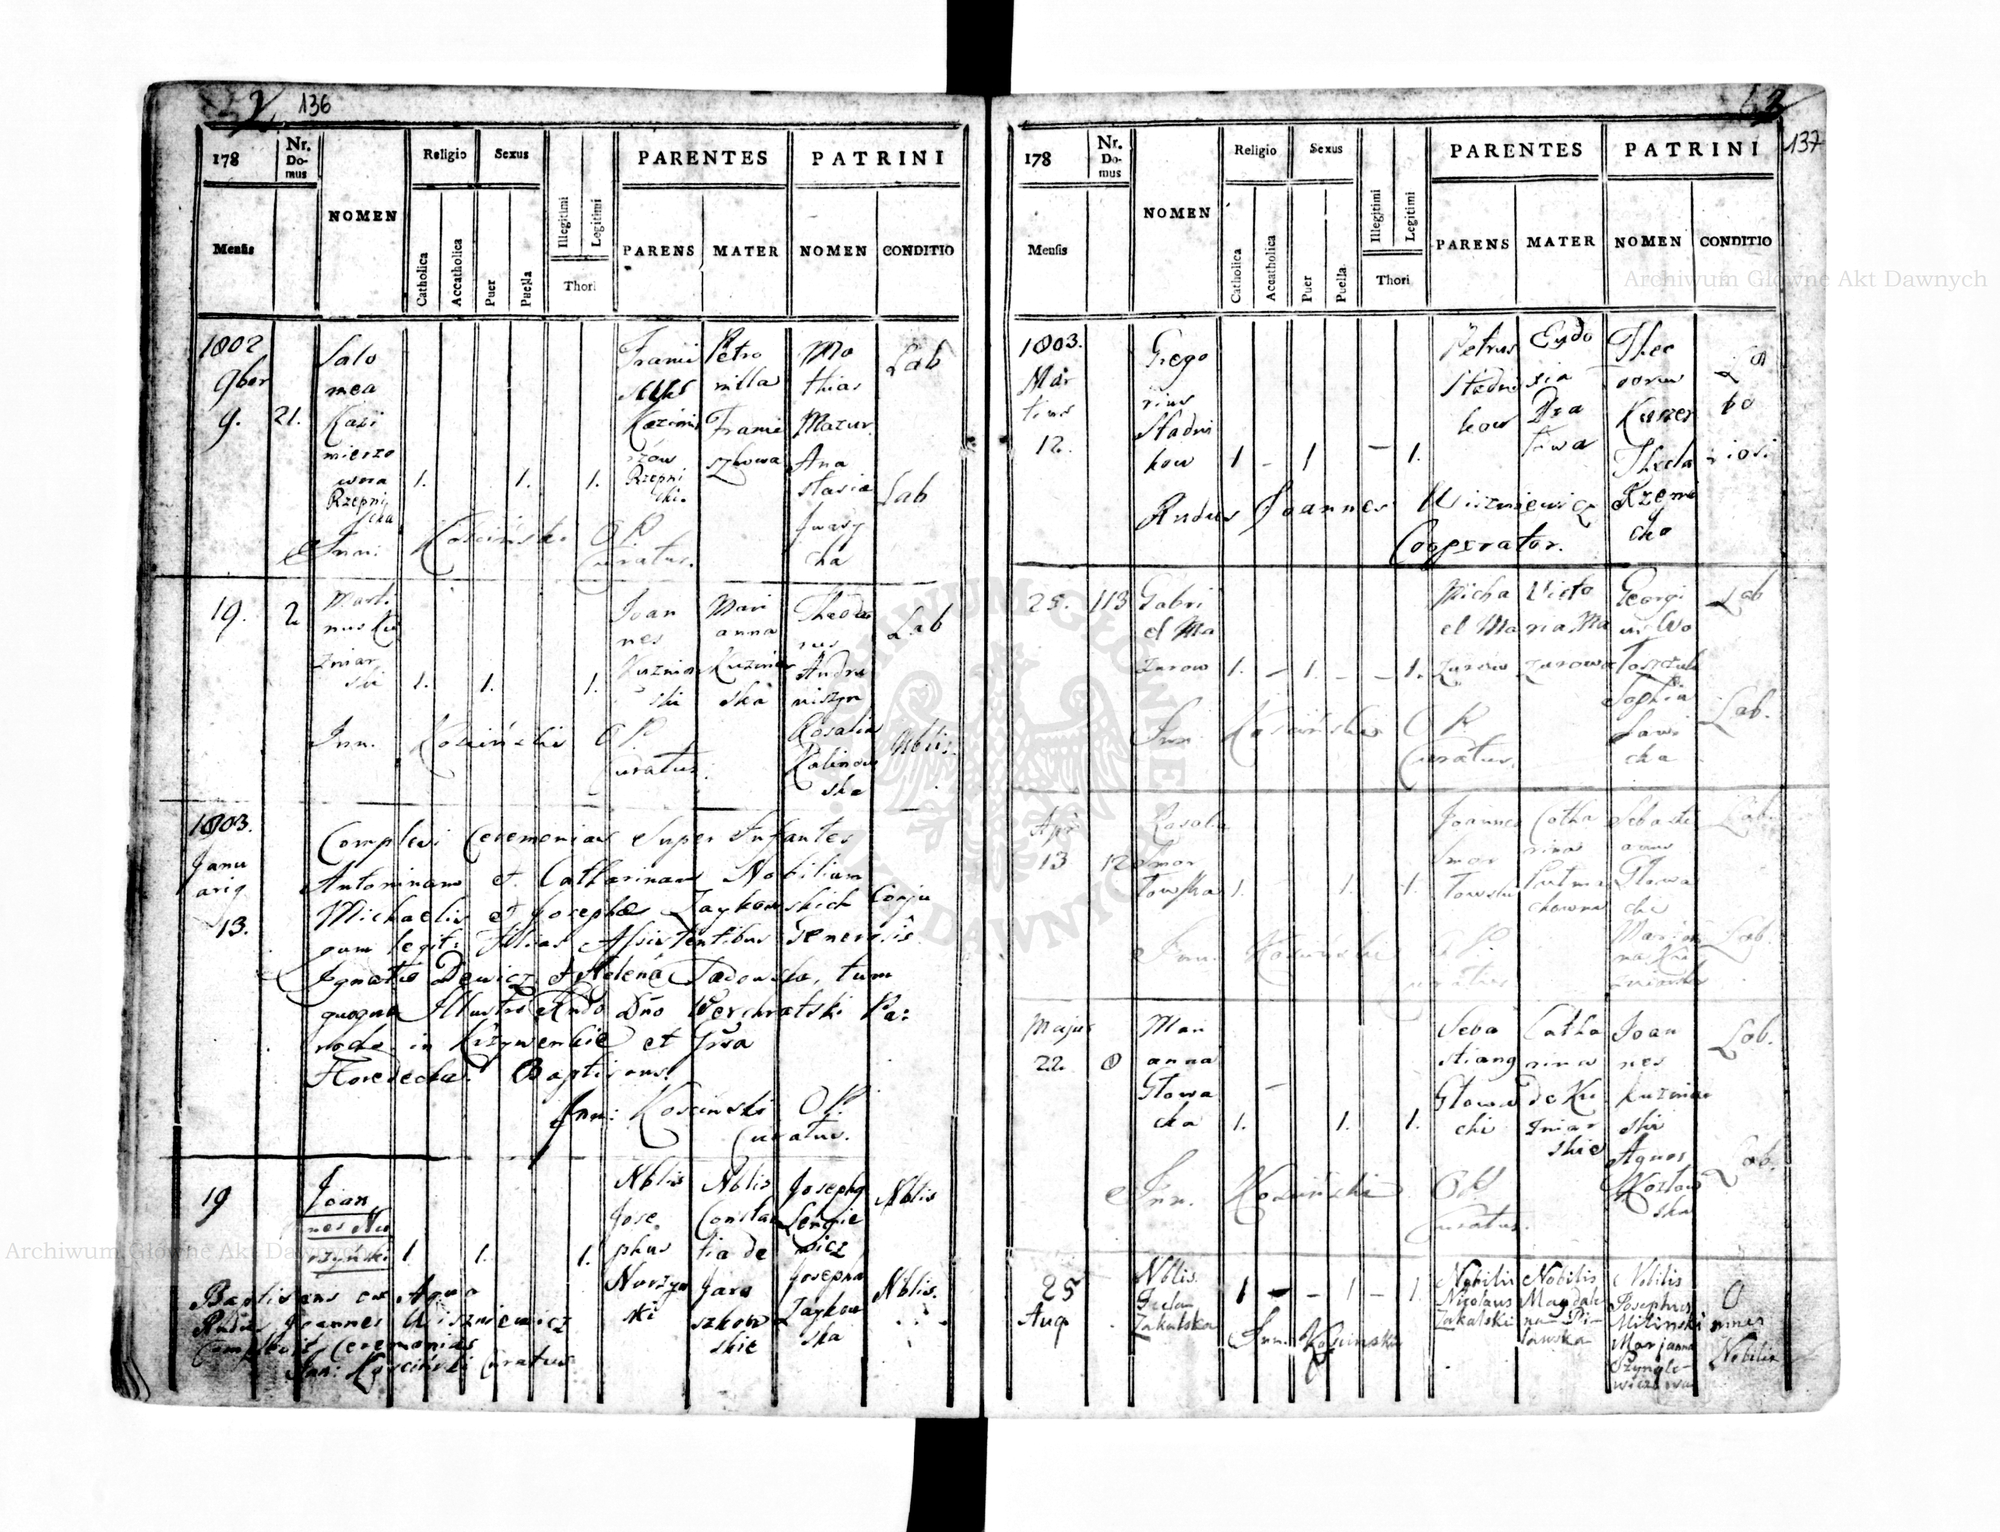 136
178
Nr. Do-mus
NOMEN
Religio
Sexus
PARENTES
PATRINI
Mensis
Catholica
Accatholica
Puer
Puella
Illegitimi
Legitimi
Thori
PARENS
MATER
NOMEN
CONDITIO
1802
9ber
9.
21.
Salo
mea
Kazi
mierzo
wna
Rzepni
cka
1.
1.
1.
Franci
scus
Kazimi
rzow
Rzepni
cki
Petro
nilla
Franci
szkowa
Ma
thias
Mazur
Ana
stasia
Iwasy
cha
Lab
Lab
Inn: Kosciński O P
Curatus.
19.
2
Marti
nus Ku
zniar
ski
1.
1.
1.
Joan
nes
Kuzniar
ski
Mari
anna
Kuzniar
ska
Theodo
rus
Andru
niszyn
Rosalia
Kalinow
ska
Lab
Nblis.
Inn. Kosciński O P.
Curatus.
1803.
Janu
arig
13.
Complevi Ceremonias Super Infantes
Antoninam et Catharinam Nobilium
Michaelis et Josephae Zaykowskich Conju
gum legit: filias Assistentibus Generosis
Ignatio Dewicz et Helena Sadowska, tum
quoque Illustri Rndo Dno Werchratski Pa:
rocho in Krzywenkie et
Horodecka. Baptisans.
Inn: Kosciński O P.
Curatus.
19
Joan
nes Nu
rzyński
1.
1.
1.
Nblis
Jose
phus
Nurzyn
ski
Nblis
Constan
tia de
Jaro
szkow
skie
Josephg
Sengie
wicz
Josepha
Zaykow
ska
Nblis
Nblis.
Baptisans ex Aqua
Rndus Joannes Wiszniewicz
Complevit Ceremonias
Inn: Kosciński Curatus
137
178
Nr. Do-mus
NOMEN
Religio
Sexus
PARENTES
PATRINI
Mensis
Catholica
Accatholica
Puer
Puella
Illegitimi
Legitimi
Thori
PARENS
MATER
NOMEN
CONDITIO
1803.
Mar
tius
12.
Grego
rius
Stadni
kow
1
-
1
-
1.
Petrus
Stadni
kow
Eudo
xia
Theo
dorus
Kuszer
Thecla
Rzemi
cha
La
bo
riosi
Rndus Joannes Wiszniewicz
Cooperator.
25.
113
Gabri
el Ma
zurow
1.
-
1.
-
-
1.
Micha
el Ma
zurow
Victo
ria Ma
zurowa
Georgi
us Wo
toszczuk
Sophia
Sawi
cka
Lab
Lab.
Inn. Kosciński O P
Curatus.
Apr
13
12
Rosalia
Smar
towska
1.
1.
1.
Joannes
Smar
towski
Catha
rina
Putma
chowna
Sebasti
anus
Głowa
cki
Marian
na Ku
zniarska
Lab.
Lab.
Inn. Kosciński O P.
Curatus
Majus
22.
Mari
anna
Głowa
cka
1.
1.
1.
Seba
stiang
Głowa
cki
Catha
rina
de Ku
zniar
skie
Joan
nes
Kuzniar
ski
Agnes
Kozłow
ska
Lab.
Lab.
Inn. Kosciński O P
Curatus.
25
Aug
Nblis.
Zakalska
1
-
-
1
-
1.
Nobilis
Nicolaus
Zakalski
Nobilis
Magdale-
na Pi-
lawska
Nobilis
Josephus
Milinski
Marjanna
Szyngle-
wiczowa
O
mnes
Nobiles
Inn. Kosciński
Archiwum Główne Akt Dawnych
Archiwum Główne Akt Dawnych
ARCHIWUM GŁÓWNE AKT DAWNYCH